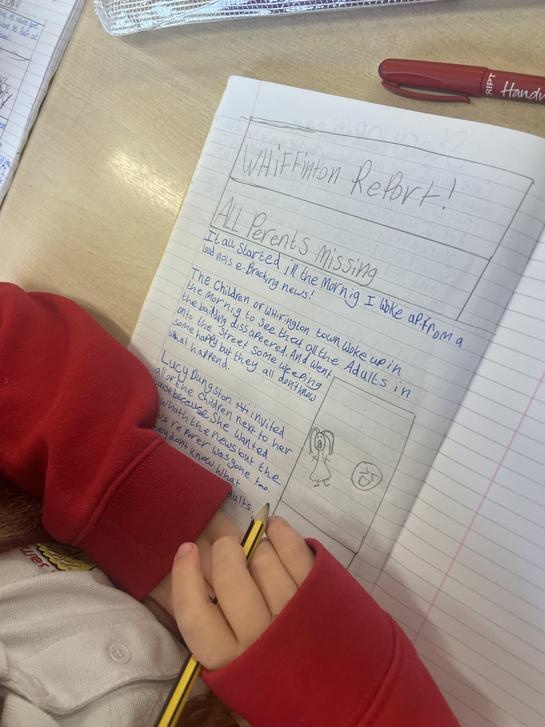 WHiFFinton RePort!
ALL Parents Missing
It all Started in the Mornig I Woke up from a
loud nois e. Bracking news!
The Children or Whirington town Woke up in
the Mornig to See that all the Adults in
the building dissapeered. And Went
onto the Street Some Weeping
Some happy but they all don't know
What happend.
Lucy Dungston invited
all or the Children next to her
because She Wanted
Whath the news but the
reporer Was gone too.
don't know What
dults.
RIPT
Handw